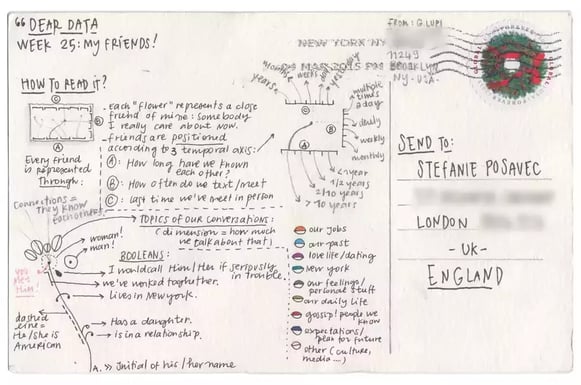 "DEAR DATA
WEEK 25: MY FRIENDS!
HOW TO READ IT?
- each "flower" represents a close
friend of mine: somebody
I really care about now.
- Friends are positioned
according to 3 temporal axis:
Ⓐ: How long have we known
each other?
Ⓑ: How often do we text/meet
Ⓒ: last time we've met in person
C
B
A
Every friend
is represented
Through:
Connections =
They know
each other!
TOPICS OF OUR CONVERSATIONS:
(dimension = how much
we talk about that)
woman!
man!
BOOLEANS:
I would call Him/Her if seriously
in trouble.
we've worked together.
lives in New York.
Has a daughter.
is in a relationship.
you
met
Him!
dashed
line =
He/she is
American
A. >> Initial of his/her name
years
months
weeks
yesterday
C
B
A
multiple
times
a day
daily
weekly
monthly
<1 year
1/2 years
≥10 years
>10 years
our jobs
our past
love life/dating
new york
our feelings/
personal stuff
our daily life
gossip/people we
know
expectations/
plan for future
other (culture,
media...)
NEW YORK NY
FROM: G. LUPI
11249
BROOKLYN
NY - USA -
SEND TO:
STEFANIE POSAVEC
LONDON
-UK-
ENGLAND